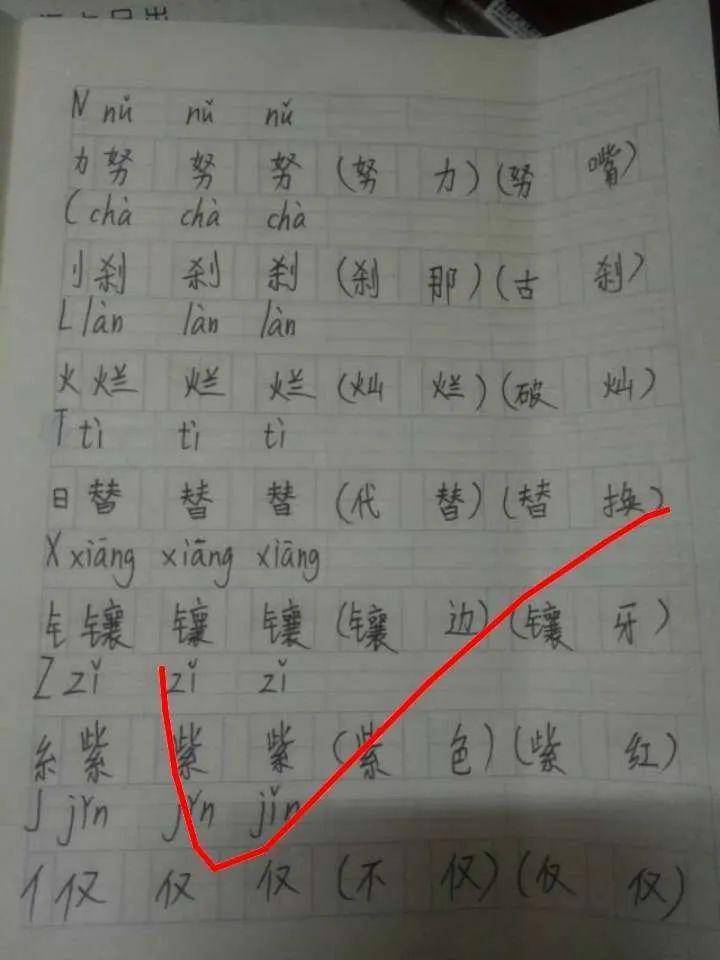 N nǔ nǔ nǔ
力 努 努 努 (努力) (努嘴)
C chà chà chà
刂 刹 刹 刹 (刹那) (古刹)
L làn làn làn
火 烂 烂 烂 (灿烂) (破灿)
T tì tì tì
日 替 替 替 (代替) (替换)
X xiāng xiāng xiāng
钅 镶 镶 镶 (镶边) (镶牙)
Z zǐ zǐ zǐ
糸 紫 紫 紫 (紫色) (紫红)
J jǐn jǐn jǐn
亻 仅 仅 仅 (不仅) (仅仅)